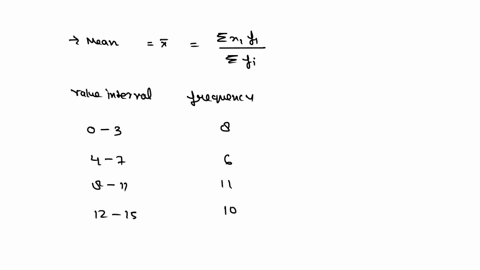 → Mean = x̄ = Σ xᵢ fᵢ / Σ fᵢ
value interval frequency
0 - 3 8
4 - 7 6
8 - 11 11
12 - 15 10